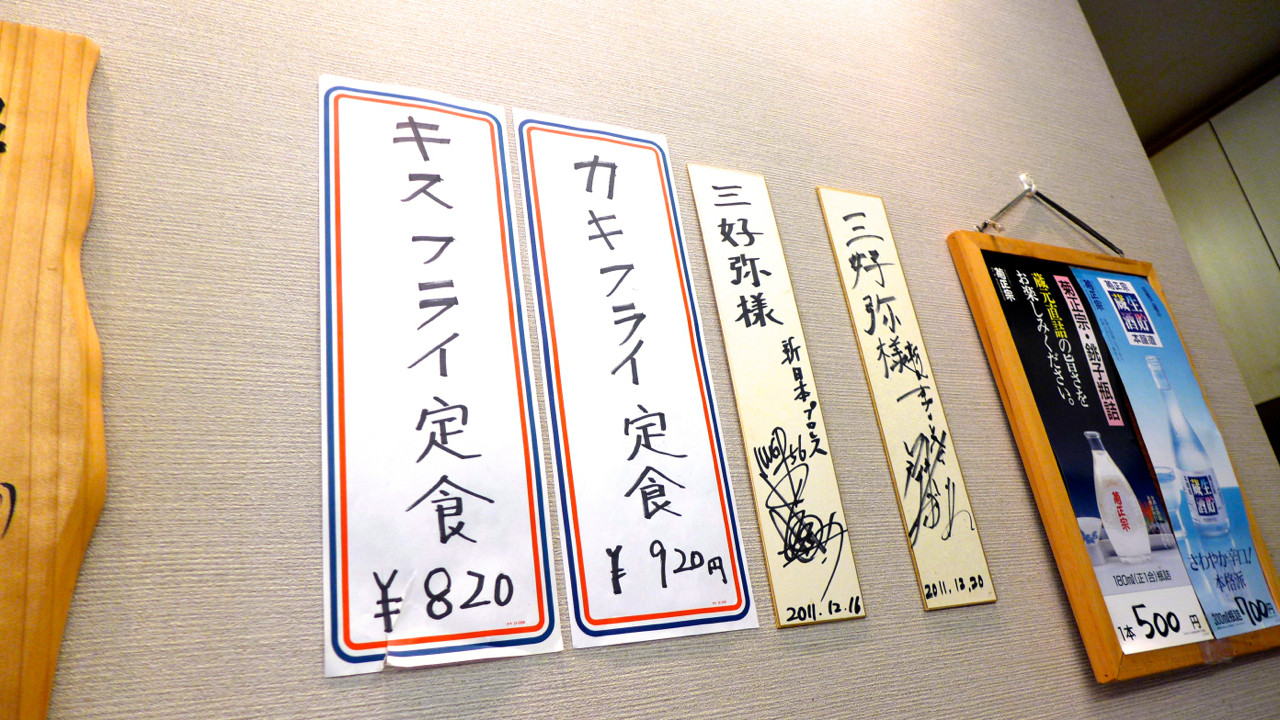 キスフライ定食
¥820
カキフライ定食
¥920円
三好弥様
新日本プロレス
2011.12.16
三好弥様
2011.12.20
菊正宗・銚子瓶詰
蔵元直詰の旨さを
お楽しみください。
菊正宗
菊正宗
180ml(正1合)瓶詰
1本500円
菊正宗
生貯
蔵酒
本醸造
生貯
蔵酒
さわやか辛口!
本格派
300ml瓶詰
700円